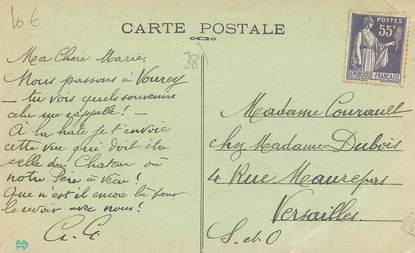 10 €
CARTE POSTALE
POSTES
55c
RÉPUBLIQUE FRANÇAISE
381
Ma Chère Marie,
Nous passons à Vourey
— tu vois quels souvenirs
cela me rappelle ! —
À la hâte je t'envoie
cette vue qui doit être
celle du Chateau où
notre Père a vécu !
Que n'est il encore là pour
le revoir avec nous !
Madame Courault
chez Madame Dubois
4 Rue Maurepas
Versailles
S. et O